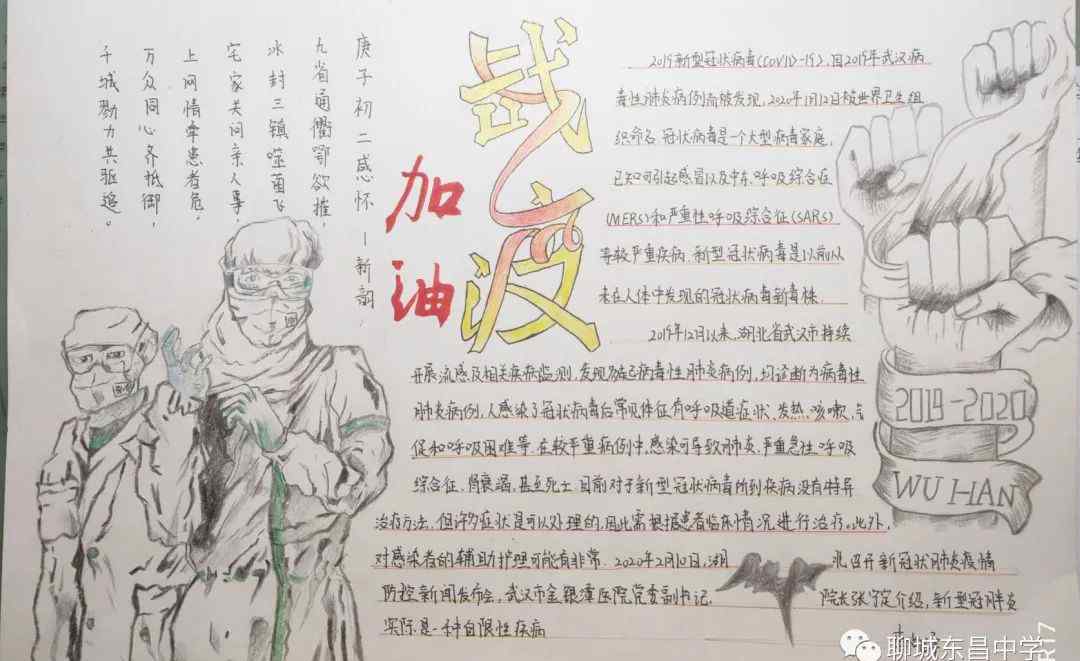 庚子初二感怀—新韵
九省通衢鄂欲摧,
冰封三镇噬菌飞
宅家关问亲人事,
上网情牵患者危。
万众同心齐抵御,
千城勠力共驱追。
战疫
加油
2019新型冠状病毒(COVID-19),因2019年武汉病
毒性肺炎病例而被发现,2020年1月12日被世界卫生组
织命名 冠状病毒是一个大型病毒家庭,
已知可引起感冒以及中东 呼吸综合征
(MERS)和严重性呼吸综合征(SARS)
等较严重疾病.新型冠状病毒是以前从
未在人体中发现的冠状病毒新毒株.
2019年12月以来,湖北省武汉市持续
开展流感及相关疾病监测,发现多起病毒性肺炎病例,均诊断为病毒性
肺炎病例,人感染了冠状病毒后常见体征有呼吸道症状、发热、咳嗽、气
促和呼吸困难等.在较严重病例中,感染可导致肺炎、严重急性呼吸
综合征、肾衰竭,甚至死亡 目前对于新型冠状病毒所到疾病没有特异
治疗方法。但许多症状是可以处理的,因此需根据患者临床情况进行治疗。此外,
对感染者的辅助护理可能有非常. 2020年2月10日,湖 北召开新冠状肺炎疫情
防控新闻发布会,武汉市金银潭医院党委副书记. 院长张定宇介绍,新型冠肺炎
实际是一种自限性疾病
2019-2020
WU HAN
聊城东昌中学